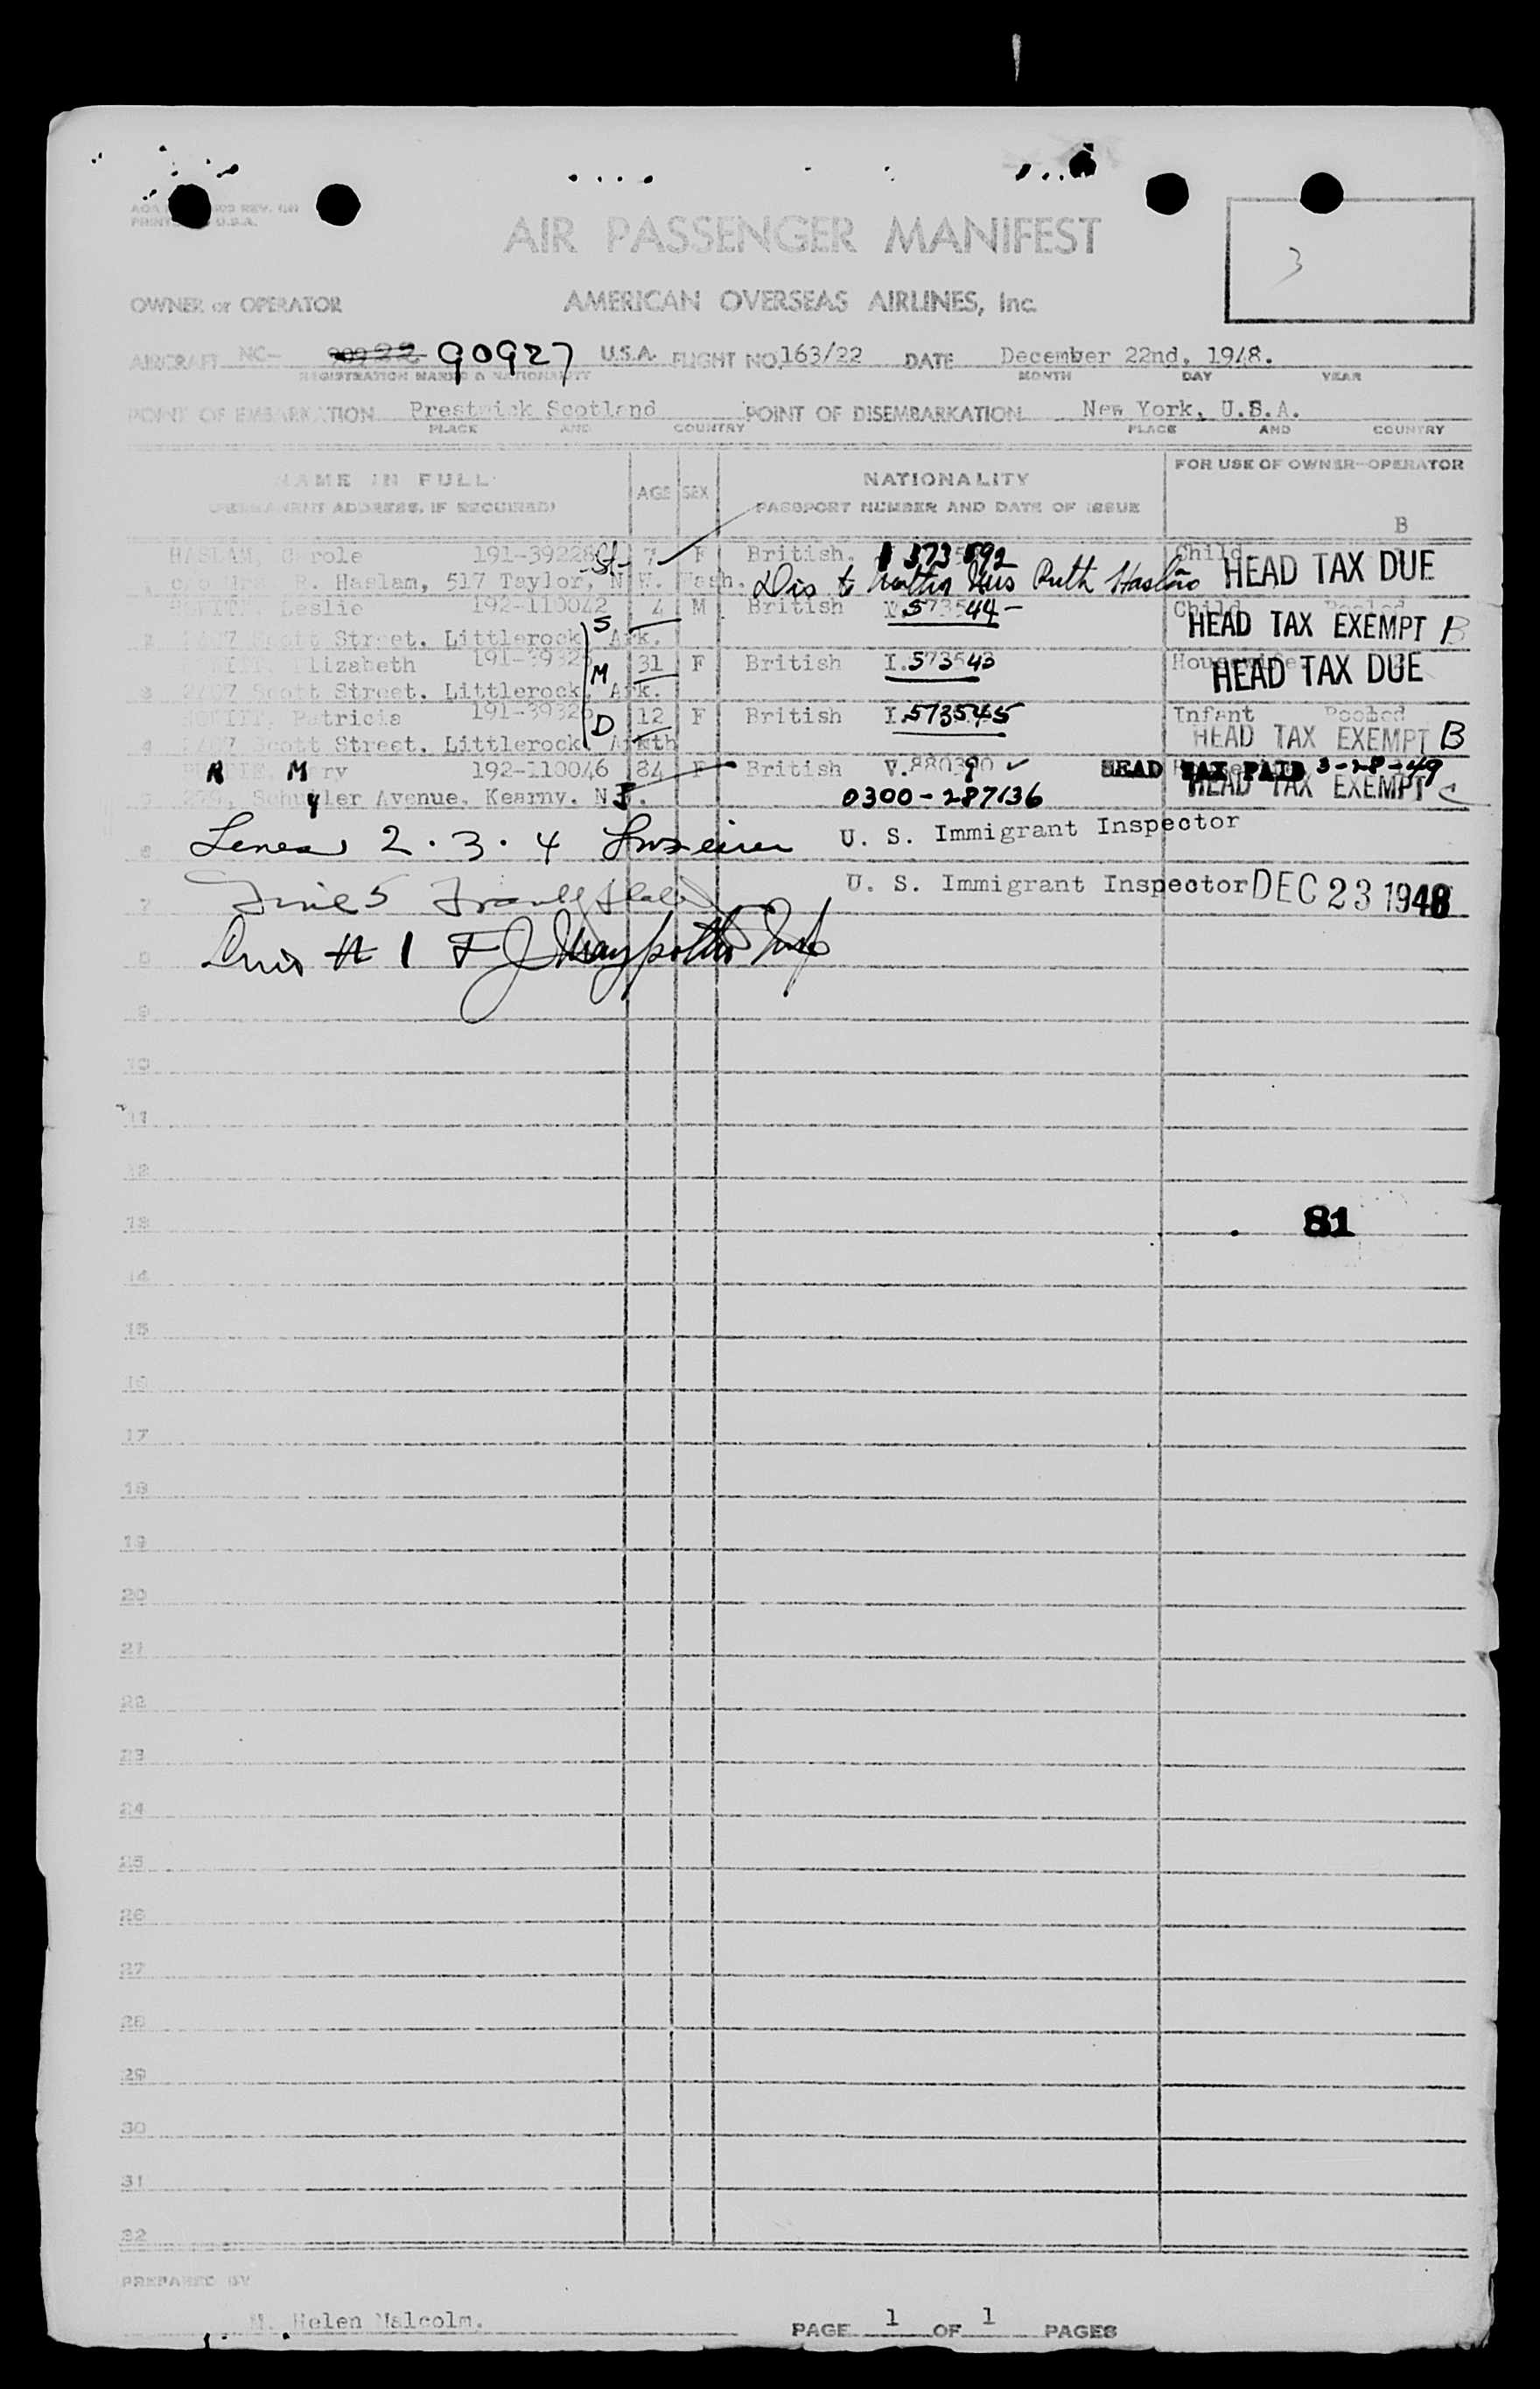 3
PRINT U.S.A.
AIR PASSENGER MANIFEST
OWNER or OPERATOR AMERICAN OVERSEAS AIRLINES, Inc.
AIRCRAFT NC- 90922 90927 U.S.A. FLIGHT NO. 163/22 DATE December 22nd, 1948.
REGISTRATION MARKS & NATIONALITY MONTH DAY YEAR
POINT OF EMBARKATION Prestwick Scotland POINT OF DISEMBARKATION New York, U.S.A.
PLACE AND COUNTRY PLACE AND COUNTRY
NAME IN FULL AGE SEX NATIONALITY FOR USE OF OWNER-OPERATOR
(PERMANENT ADDRESS, IF REQUIRED) PASSPORT NUMBER AND DATE OF ISSUE
B
HASLAM, Carole 191-39228 St- 7 F British. 373592 Child HEAD TAX DUE
1 c/o Mrs. R. Haslam, 517 Taylor, N.W. Wash. Dis to Mother Mrs Ruth Haslam
Leslie 192-110042 S 4 M British 573544- Child Pooled HEAD TAX EXEMPT B
2 2407 Scott Street. Littlerock, Ark.
Elizabeth 191-3932 M 31 F British I.573543 Housewife HEAD TAX DUE
3 2407 Scott Street. Littlerock, Ark.
Patricia 191-3932 D 12 F British I.573545 Infant Pooled
4 2407 Scott Street. Littlerock, Ark. mth HEAD TAX EXEMPT B
M ry 192-110046 84 F British V. HEAD TAX PAID 3-28-49
5 259, Schuyler Avenue, Kearny. N.J. 0300-287136 HEAD TAX EXEMPT C
6 Lines 2.3.4 U. S. Immigrant Inspector
7 Line 5 U. S. Immigrant Inspector DEC 23 1948
8 Line # 1 F J
9
10
11
12
13 81
14
15
16
17
18
19
20
21
22
23
24
25
26
27
28
29
30
31
32
PREPARED BY
M. Helen Malcolm. PAGE 1 OF 1 PAGES